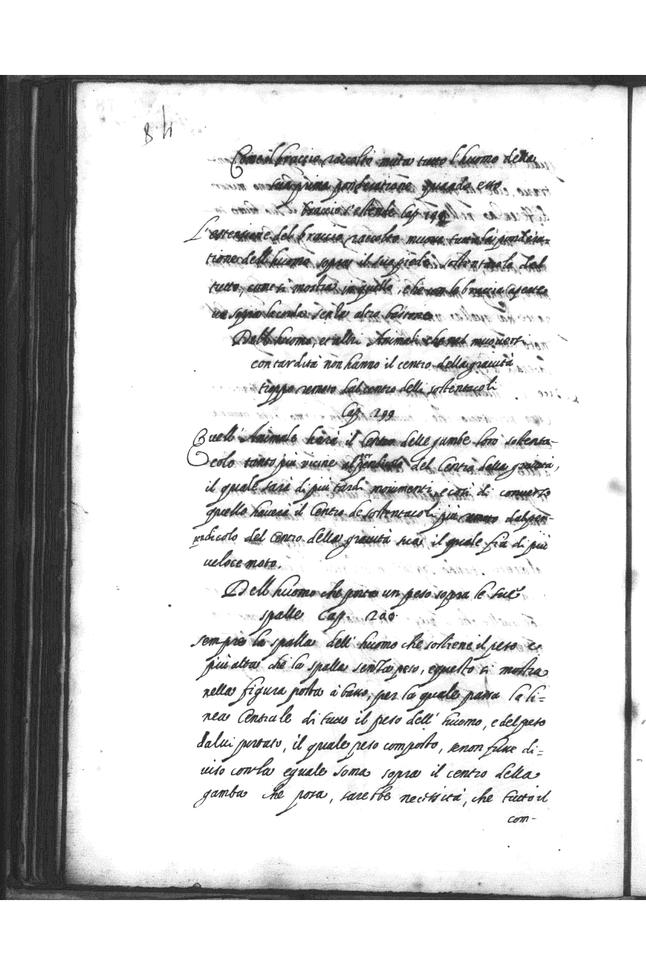 84
Come il braccio raccolto muta tutto l'huomo della
sua prima ponderatione quando esso
braccio s'estende Cap. 198
L'estensione del braccio raccolto muove tutta la pondera-
tione dell'huomo sopra il suo piede sostentacolo del
tutto, come si mostra in quello, che con le braccia aperte
va sopra la corda senza altro bastone.
Dell'huomo, et altri Animali che nel muoversi
con tardità non hanno il centro della gravità
troppo remoto dal centro delli sostentacoli
Cap. 199
Quell'Animale havrà il Centro delle gambe loro sostenta-
colo tanto più vicino al perpendicolo del Centro della gravità,
il quale sarà di più tardi movimenti, e così di converso
quello haverà il Centro de sostentacoli più remoto dal perpen-
dicolo del Centro della gravità sua il quale fia di più
veloce moto.
Dell'huomo che porta un peso sopra le sue
spalle Cap. 200
sempre la spalla dell'huomo che sostiene il peso è
più alta che la spalla senza peso, e questo si mostra
nella figura posta à basso, per la quale passa la li=
nea Centrale di tutto il peso dell'huomo, e del peso
da lui portato, il quale peso composto, se non fusse di=
viso con la eguale soma sopra il centro della
gamba che posa, sarebbe necessità, che tutto il
com-